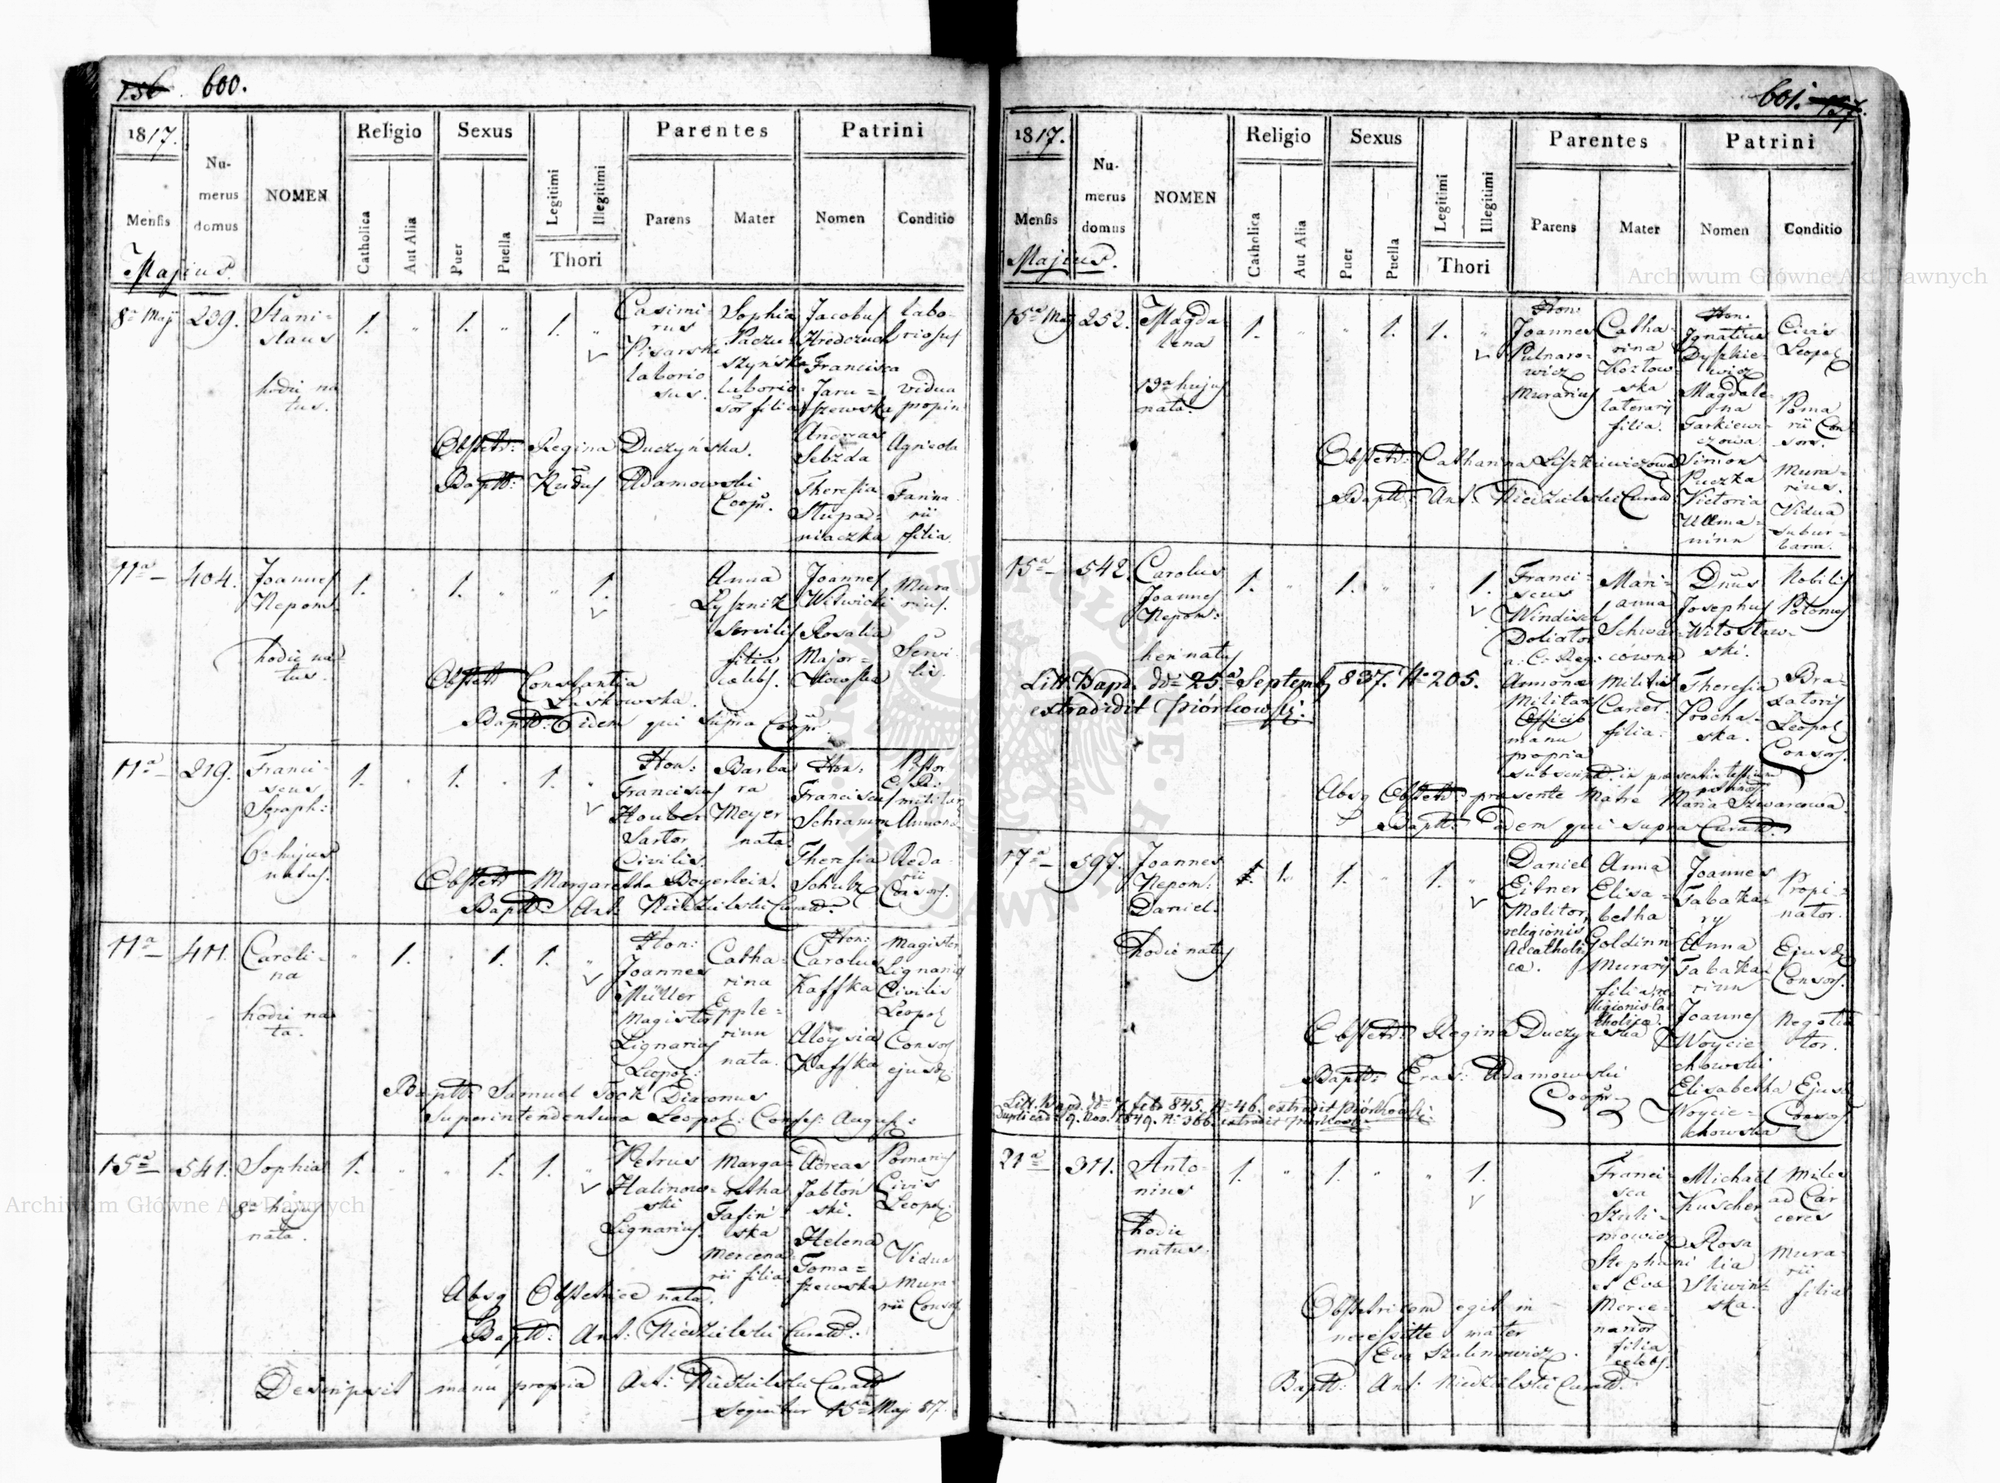 156 600.
1817.
Religio Sexus Parentes Patrini
Nu-
merus
domus
NOMEN
Legitimi Illegitimi
Mensis
Catholica Aut Alia Puer Puella
Thori
Parens Mater Nomen Conditio
Majius.
8a Maij 239. Stani-
slaus
hodie na
tus.
1. " 1. " 1. "
Casimi-
rus
Pisarski
laborio
sus.
Sophia
Paczu
szyńska
laborio-
sor filia
Jacobus
Hredczuch
Francisca
Jaru=
szewska
Andreas
Sebzda
Theresia
Stupar=
niaczka
labo-
riosus
vidua
propin
Agricola
filia
Obstetr: Regina Duczyńska.
Bapt: Adamowski
Coopr.
11a 404. Joannes
Nepom:
hodie na=
tus.
1. " 1. " " 1.
Anna
servilis
filia
caelebs.
Joannes
Witwicki
Rosalia
Major=
kowska
Mura
rius.
Servi
lis.
Obstetr Constantia
Laskowska.
Bapt: Idem qui supra Coopr.
11a 219. Franci-
scus
Seraph:
6a hujus
natus.
1. " 1. " 1. "
Hon:
Franciscus
Houber
Sartor
Civilis.
Barba
ra
Meyer
nata.
Hon:
Franciscus
Schramm
Theresia
Schulz
Pistor
Consors.
Obstetr Margaretha Beyerlein.
Bapt: Ant: Niedzielski Curatt:
11a 411. Caroli-
na
hodie na
ta.
" 1. " 1. 1. "
Hon:
Joannes
Müller
Magister
Lignarius
Leopol:
Catha-
rina
Epple-
rinn
nata.
Hon:
Carolus
Kaffka
Aloysia
Kaffka
Magister
Lignarius
Civilis
Leopol
Consors
ejusd:
Bapt: Samuel Jock Diaconus
Superintendentura Leopol: Confess: August:
15a 541. Sophia
8a hujus
nata.
1. " " 1. 1. "
Petrus
Halinow-
ski
Lignarius.
Marga-
retha
Tasiń
ska
mercena
rii filia.
Adreas
Jabłoń
ski.
Helena
Toma=
szewska
Pomarius
Civis
Leopol:
Vidua
Mura-
rii Consors
Absq Obstetrice nata.
Bapt: Ant: Niedzielski Curatt:
Descripsit manu propria Ant: Niedzielski Curatt
sequitur 15a Maj 817.
601. 157.
1817.
Religio Sexus Parentes Patrini
Nu-
merus
domus
NOMEN
Legitimi Illegitimi
Mensis
Catholica Aut Alia Puer Puella
Thori
Parens Mater Nomen Conditio
Majius.
15a Maij 252. Magda-
lena
13a hujus
nata.
1. " " 1. 1. "
Hon:
Joannes
Pulnaro-
wicz
Murarius
Catha
rina
Kozłow
ska
laterarij
filia.
Hon:
Ignatius
Dyszkie-
wicz
Magdale-
na
Tarkiewi-
czowa
Simon
Puczka
Victoria
Ullma=
ninn
Civis
Leopol
Poma
rii Con
sors.
Mura=
rius.
Vidua
subur=
bana.
Obstetr: Catharina Liszkiewiczowa
Bapt: Ant: Niedzielski Curatt
15a 542. Carolus
Joannes
Nepom:
heri natus
1. " 1. " " 1.
Franci-
scus
Windisch
Doliator
a: C: Reg:
Annonae
Militar
Officio
manu
propria
subscript: in praesentia testium
Mari-
anna
Schwar-
cówna
Militis
Carcer
filia.
Dnus
Josephus
Witosław-
ski.
Theresia
Procha-
ska.
Nobilis
Polonus
Bra-
xatoris
Leopol
Consors
Litt: Bapt. do 25a Septemb 837. No 205.
extradidit Piórkowski.
Absq Obstetr: praesente Matre Maria Szwarcowa
Bapt: Idem qui supra Curatt:
17a 597. Joannes
Nepom:
Daniel.
hodie natus
1. 1. 1. " 1. "
Daniel
Eitner
Molitor,
religionis
Accatholi
cae.
Anna
Elisa-
betha
Goldinn
Murarij
filia re
ligionis Ca
tholicae.
Joannes
Tabaka-
ry
Anna
Tabaka
rinn
Joannes
Woycie
chowski
Elisabetha
Woycie-
chowska
Propi-
nator.
Ejusd
Consors.
Negotia
tor.
Ejusd
Consors
Obstetr: Regina Duczyńska
Bapt: Eras: Adamowski
Coopr.
Litt: Bapt: do 7 Febr 845. No 46. extradit Piórkowski.
Duplicatd 9. Nov. 1849. No 366. extradit Piórkowski
21a 311. Anto-
nius
hodie
natus.
1. " 1. " " 1.
Franci-
sca
Szuli-
mowicz
Stephani
et Eva
Merce-
narior
filia
celebs.
Michael
Kuscher
Rosa
lia
Sliwin
ska.
Miles
ad Car
ceres
Mura-
rii
filia
Obstetricem egit in
necessitte mater
Eva Szulimowicz.
Bapt: Ant: Niedzielski Curatt: